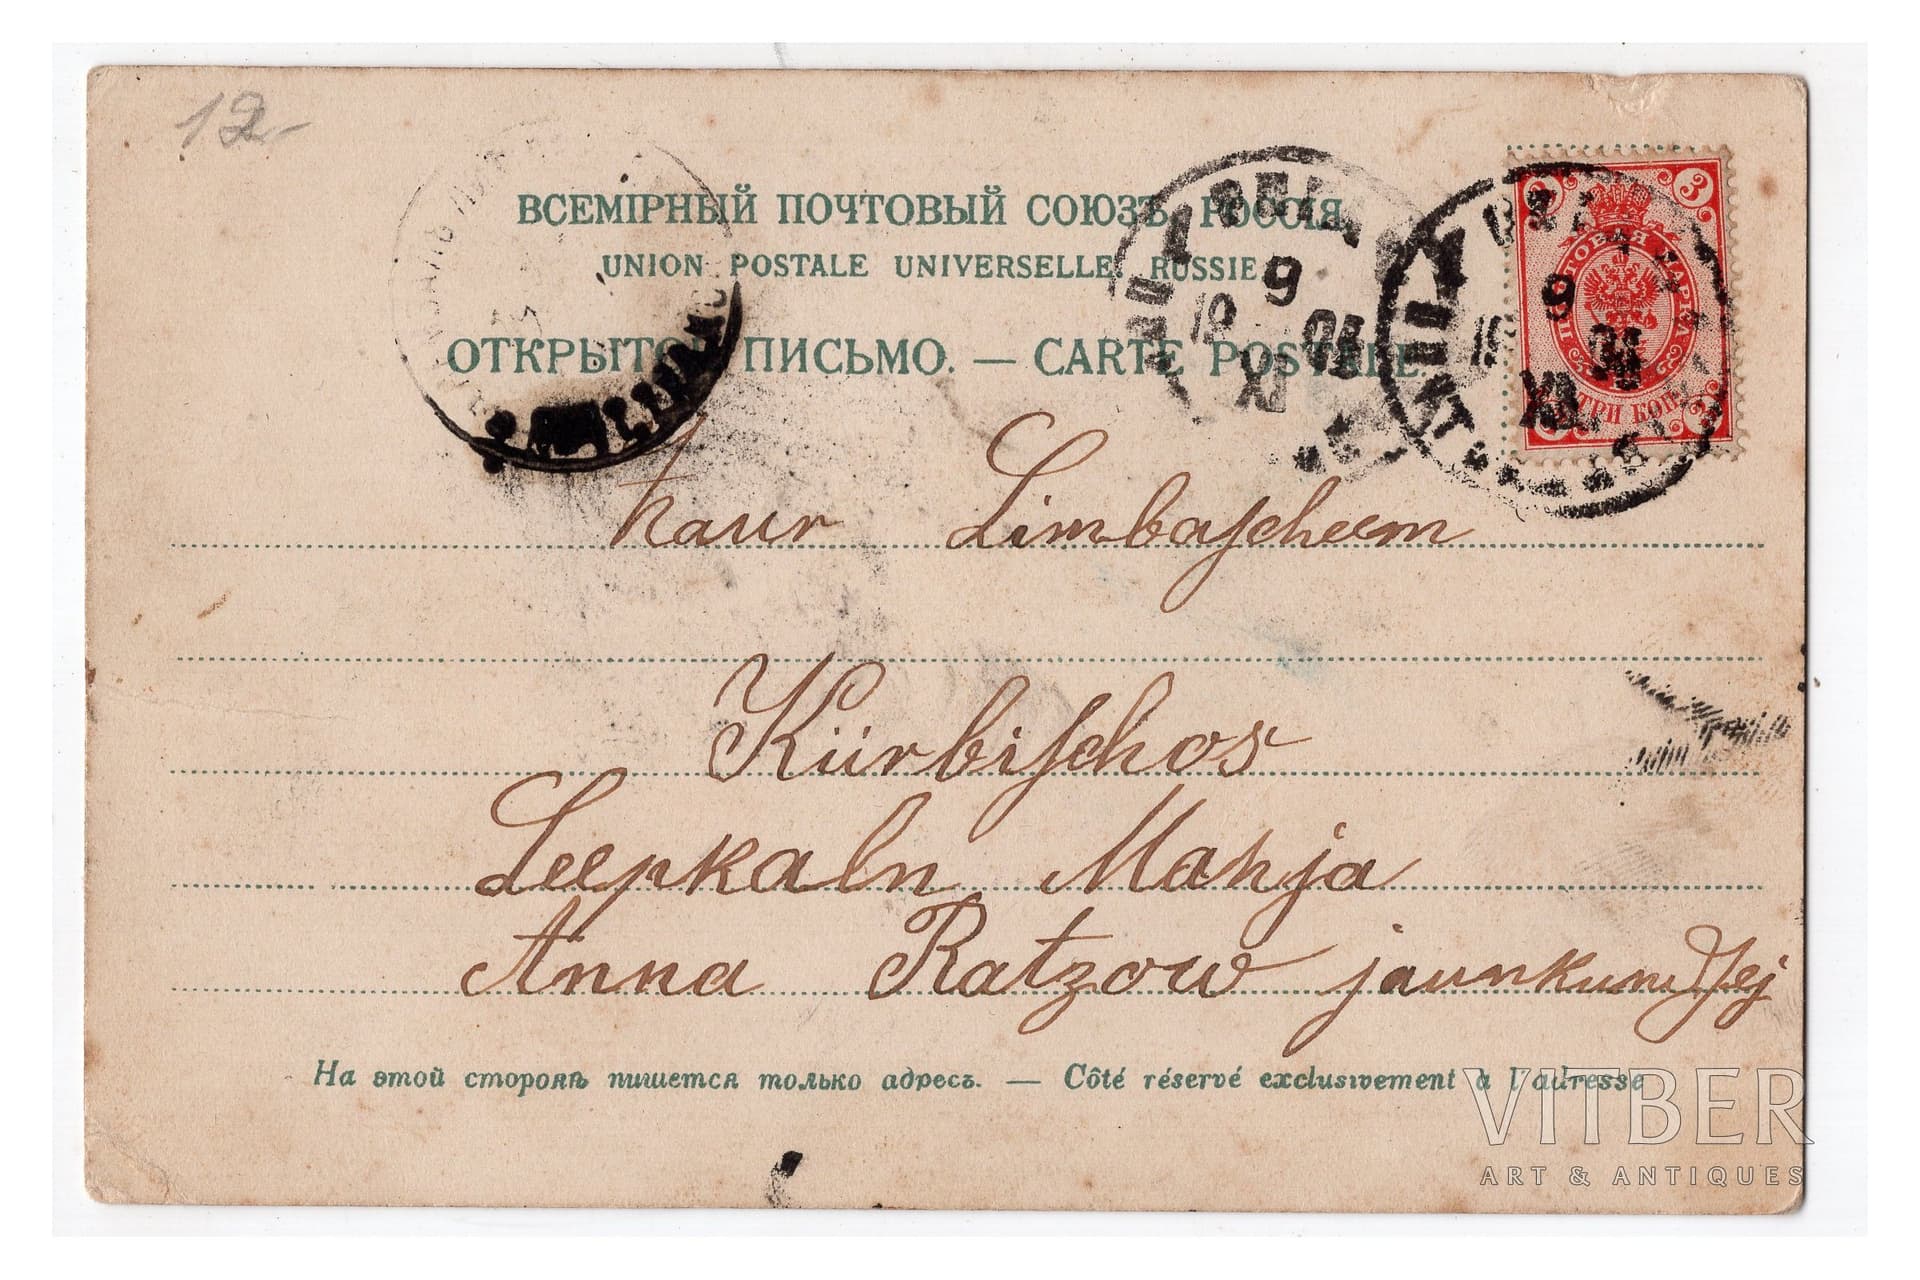 12-
ВСЕМІРНЫЙ ПОЧТОВЫЙ СОЮЗЪ. РОССІЯ.
UNION POSTALE UNIVERSELLE. RUSSIE
ОТКРЫТОЕ ПИСЬМО. — CARTE POSTALE.
3 3
ПОЧТОВАЯ МАРКА
ТРИ КОП.
9
XI
9
XI
kaur Limbascheem
Kürbischos
Leepkaln Mahja
Anna Ratzow jaunkundsej
На этой сторонѣ пишется только адресъ. — Côté réservé exclusivement à l'adresse
VITBER
ART & ANTIQUES